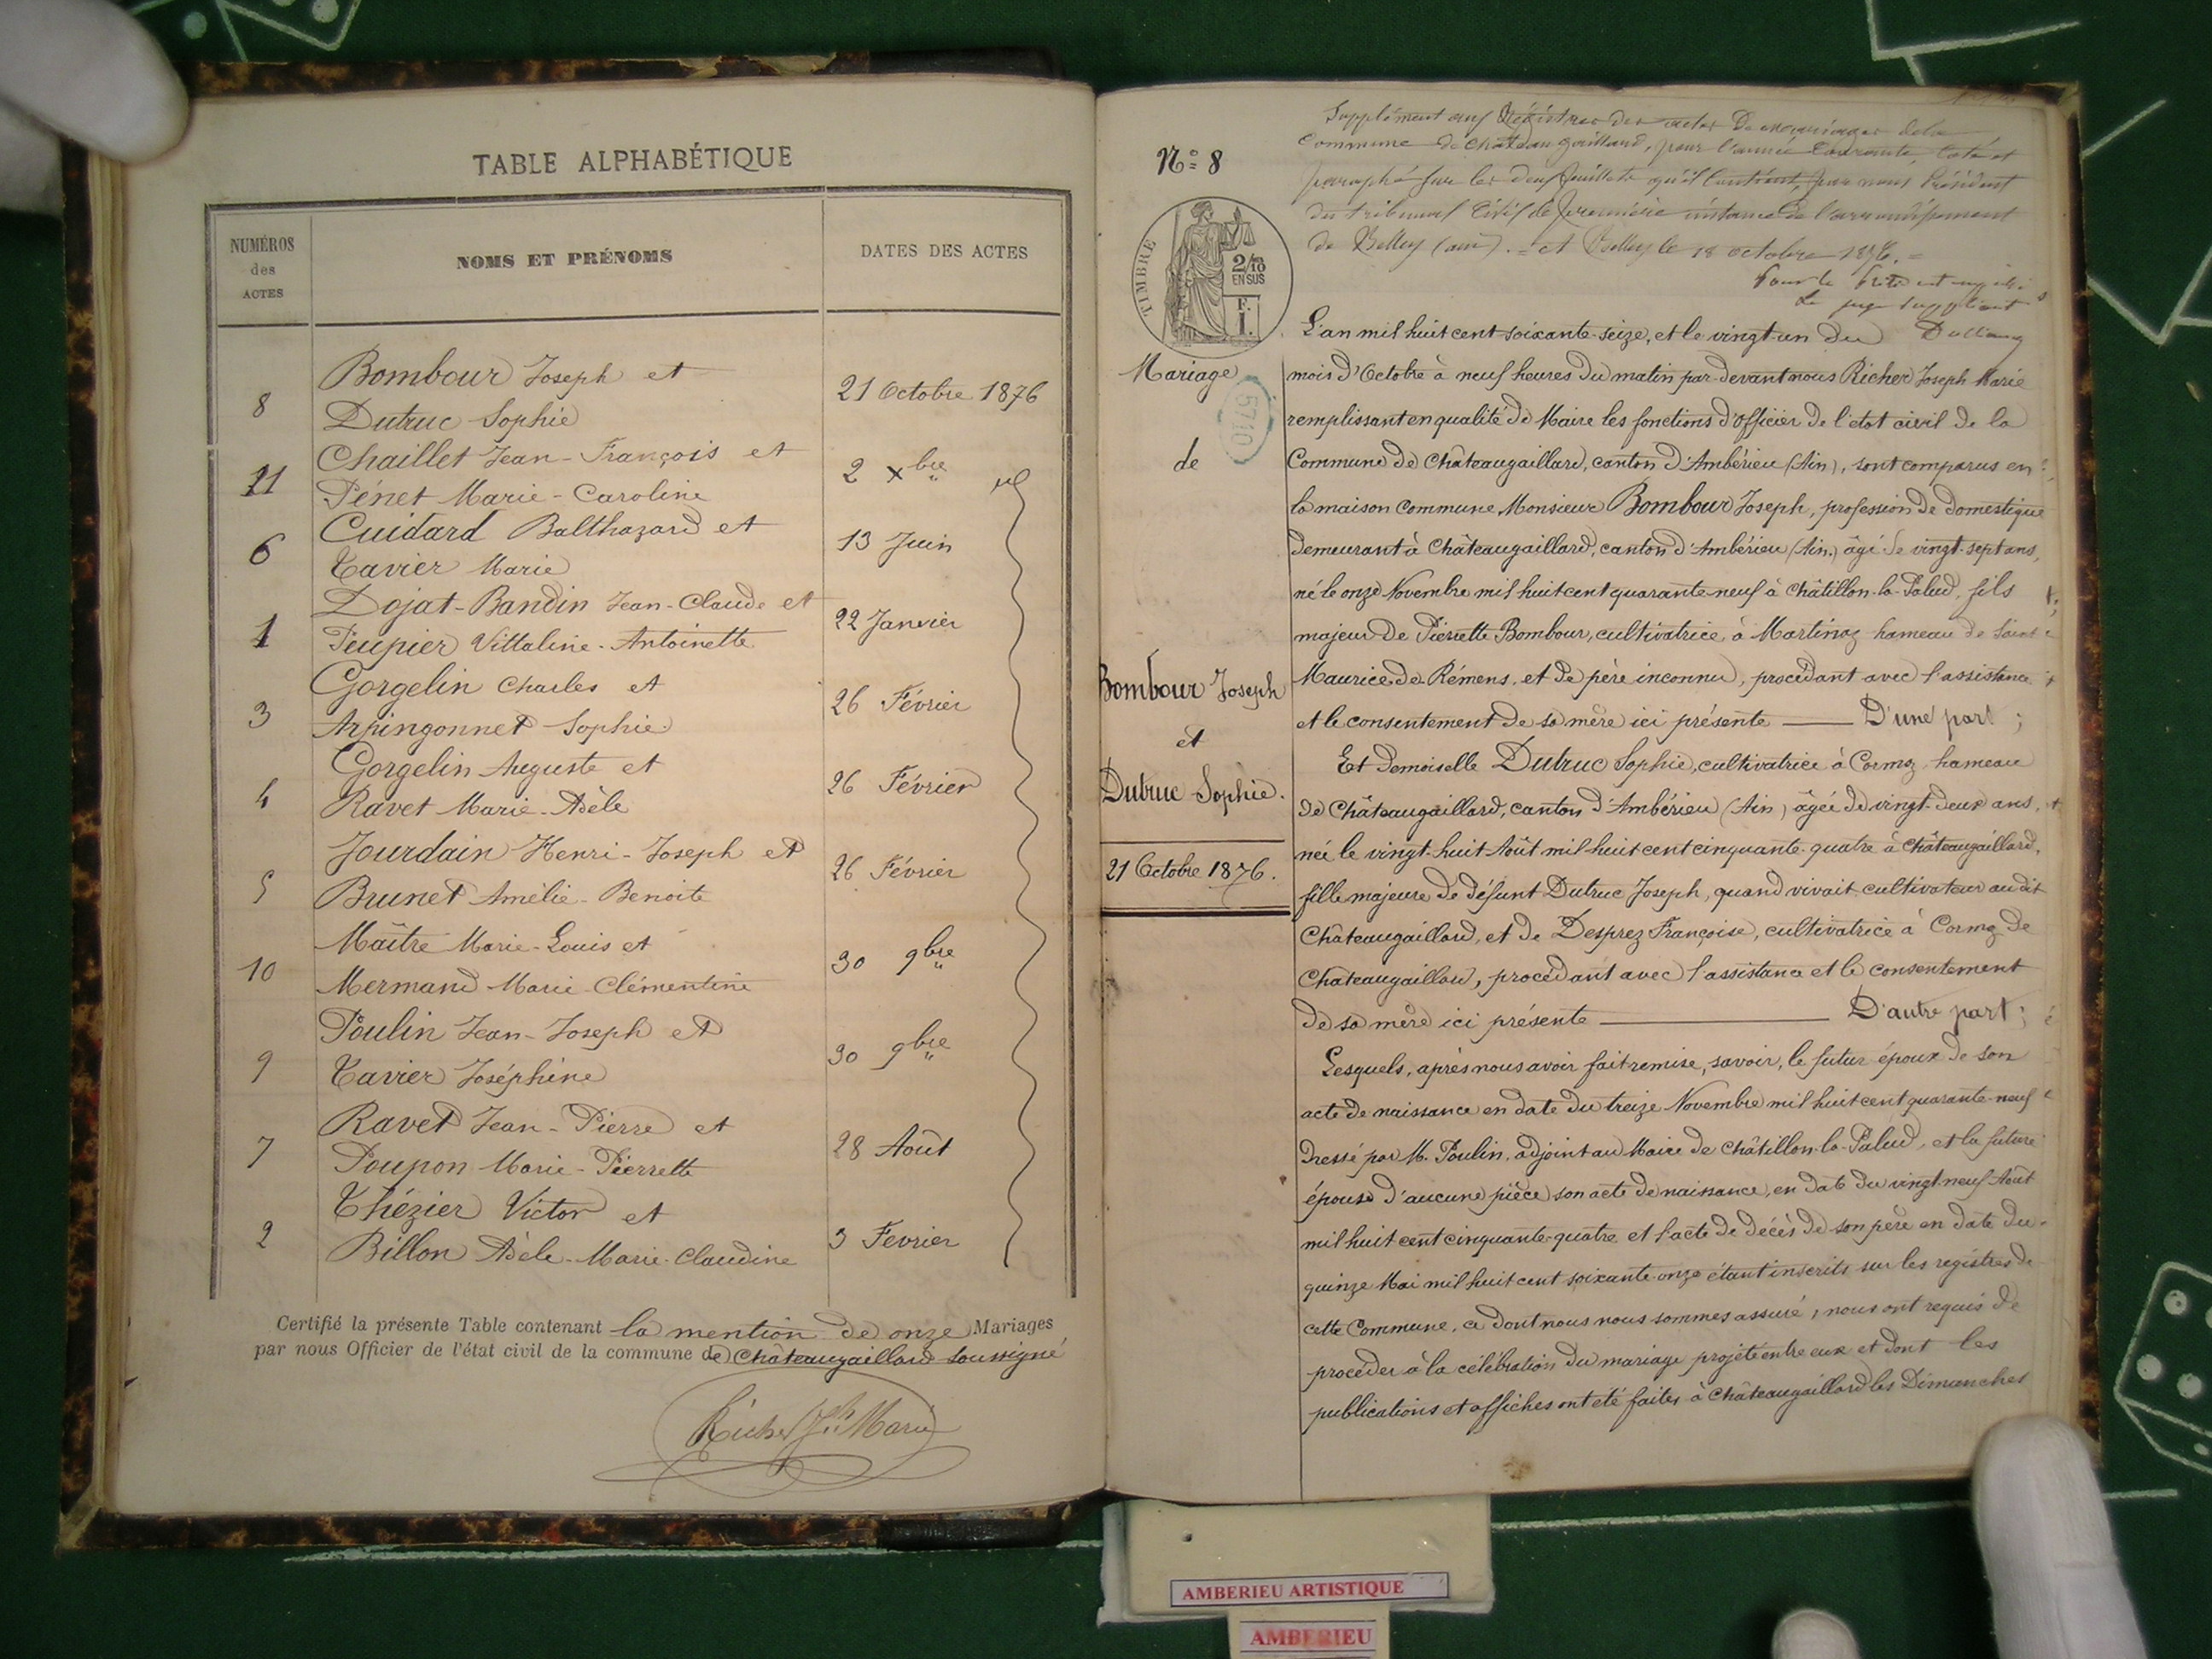 TABLE ALPHABÉTIQUE
NUMÉROS des ACTES
NOMS ET PRÉNOMS
DATES DES ACTES
8 Bombour Joseph et
Dutruc Sophie
21 Octobre 1876
11 Chaillet Jean-François et
Pénet Marie-Caroline
2 Xbre
6 Cuidard Balthazard et
Tavier Marie
13 Juin
1 Dojat-Bandin Jean-Claude et
Peupier Vittaline-Antoinette
22 Janvier
3 Gorgelin Charles et
Arpingonnet Sophie
26 Février
4 Gorgelin Auguste et
Ravet Marie-Adèle
26 Février
5 Jourdain Henri-Joseph et
Brunet Amélie-Benoite
26 Février
10 Maître Marie-Louis et
Mermand Marie-Clémentine
30 9bre
9 Poulin Jean-Joseph et
Tavier Joséphine
30 9bre
7 Ravet Jean-Pierre et
Poupon Marie-Pierrette
28 Août
2 Thézier Victor et
Billon Adèle-Marie-Claudine
3 Fevrier
Certifié la présente Table contenant la mention de onze Mariages
par nous Officier de l'état civil de la commune de Châteaugaillard soussigné
Richer Jh Marie
Supplément aux Régistres des actes de mariages de la
Commune de Chateaugaillard, pour l'année Courante, Coté et
paraphé sur les deux feuillets qu'il Contient, par nous Président
du tribunal Civil de première instance de l'arrondissement
de Belley (ain). = A Belley le 18 octobre 1876. =
Pour le
Le juge suppléant
N° 8
TIMBRE
2/10
EN SUS
F.
1.
5710
Mariage
de
Bombour Joseph
et
Dutruc Sophie.
21 Octobre 1876.
L'an mil huit cent soixante-seize, et le vingt-un du
mois d'Octobre à neuf heures du matin par-devant nous Richer Joseph Marie
remplissant en qualité de Maire les fonctions d'officier de l'état civil de la
Commune de Châteaugaillard, canton d'Ambérieu (Ain), sont comparus en
la maison commune, Monsieur Bombour Joseph, profession de domestique
demeurant à Châteaugaillard, canton d'Ambérieu (Ain.) âgé de vingt-sept ans,
né le onze Novembre mil huit cent quarante-neuf à Châtillon-la-Palud, fils
majeur de Pierrette Bombour, cultivatrice, à Martinaz hameau de Saint
Maurice-de-Rémens, et de père inconnu, procédant avec l'assistance
et le consentement de sa mère ici présente — D'une part ;
Et Demoiselle Dutruc Sophie, cultivatrice à Cormoz, hameau
de Châteaugaillard, canton d'Ambérieu (Ain) âgée de vingt-deux ans,
née le vingt-huit Août mil huit cent cinquante-quatre à Châteaugaillard,
fille majeure de défunt Dutruc Joseph, quand vivait cultivateur au dit
Châteaugaillard, et de Desprez Françoise, cultivatrice à Cormoz de
Chateaugaillard, procédant avec l'assistance et le consentement
de sa mère ici présente — D'autre part ;
Lesquels, après nous avoir fait remise, savoir, le futur époux de son
acte de naissance en date du treize Novembre mil huit cent quarante-neuf
Dressé par M. Poulin, adjoint au Maire de Châtillon-la-Palud, et la future
épouse d'aucune pièce, son acte de naissance, en date du vingt-neuf Août
mil huit cent cinquante-quatre et l'acte de décès de son père en date du
quinze Mai mil huit cent soixante-onze étant inscrits sur les registres de
cette Commune, ce dont nous nous sommes assuré, nous ont requis de
procéder à la célébration du mariage projeté entre eux et dont les
publications et affiches ont été faites à Châteaugaillard les Dimanches
AMBERIEU ARTISTIQUE
AMBERIEU